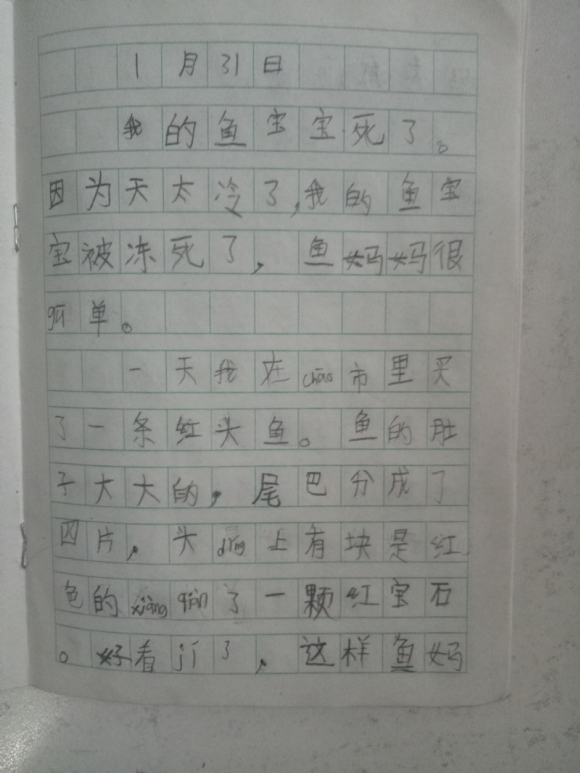 1月31日
我的鱼宝宝死了。
因为天太冷了,我的鱼宝
宝被冻死了,鱼妈妈很
gū单。
一天我在chāo市里买
了一条红头鱼。鱼的肚
子大大的,尾巴分成了
四片,头dǐng上有块是红
色的xiāng qiàn了一颗红宝石
。好看jí了,这样鱼妈